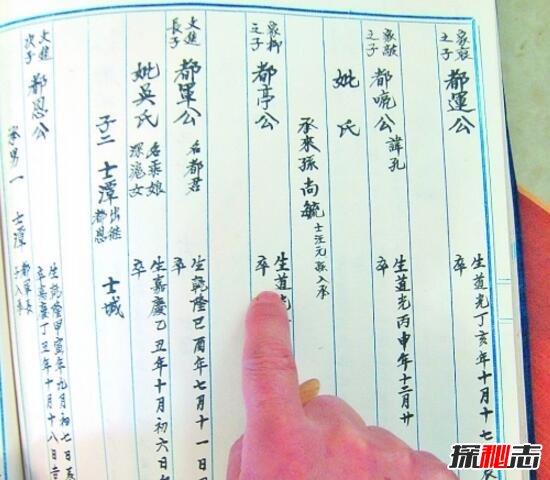 之子
都運公
生道光丁亥年十月十七
卒
之子
都公諱孔
生道光丙申年十二月廿
卒
妣氏
承來孫尚毓士汪元孫入承
之子
都亭公
生道
卒
文進長子
都軍公名都君
生乾隆己酉年七月十一日
卒
妣吳氏名乘娘深滝女
生嘉慶乙丑年十月初六日
卒
子二 士潭出继都恩 士城
文進次子
都恩公
生乾隆甲寅年九月初七日
卒嘉慶丁丑年十月十八日
承男一 士潭都軍長子入承
探秘志